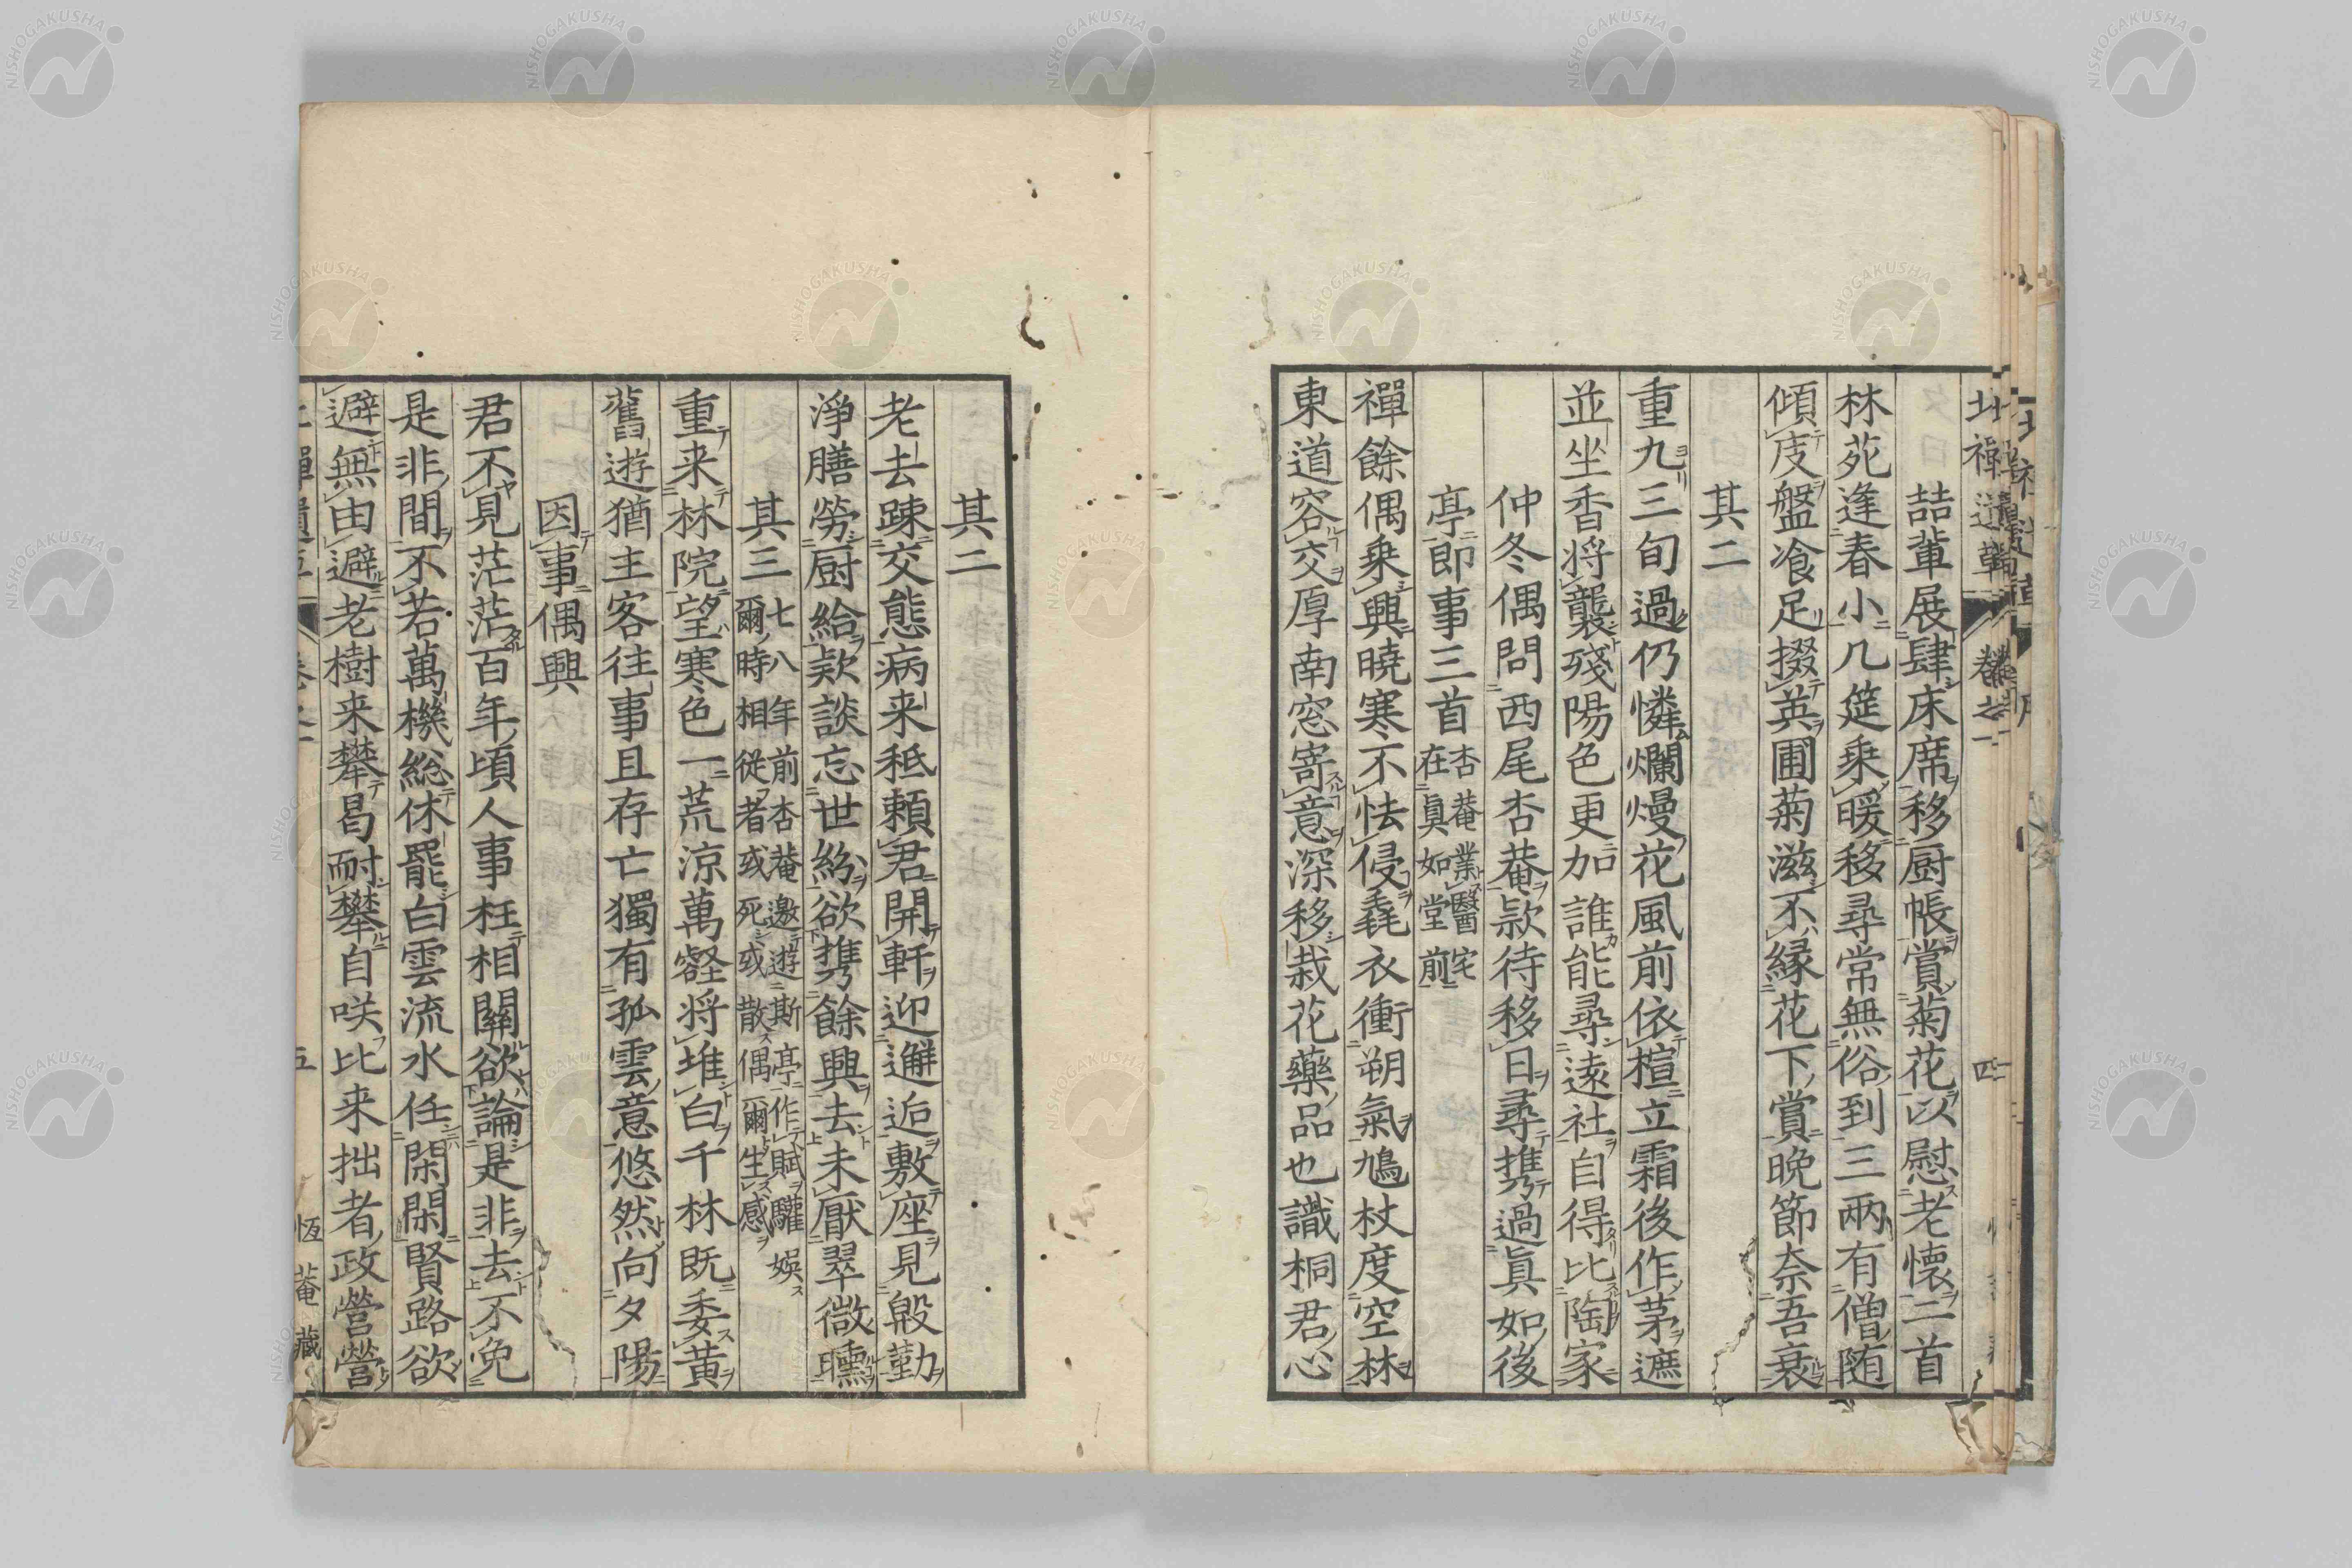 喆輩展肆床席移厨帳賞菊花以慰老懷二首
林苑逢春小几筵乘暖移尋常無俗到三兩有僧随
傾庋盤飡足掇英圃菊滋不縁花下賞晩節奈吾衰
其二
重九三旬過仍憐爛熳花風前依楦立霜後作茅遮
並坐香將襲殘陽色更加誰能尋遠社自得比陶家
仲冬偶問西尾杏菴欵待移日尋携過眞如後
亭即事三首杏菴業醫宅在眞如堂前
禪餘偶乘興曉寒不怯侵毳衣衝朔氣鳩杖度空林
東道容交厚南窓寄意深移栽花藥品也識桐君心
其二
老去踈交態病来秪頼君開軒迎邂逅敷座見慇勤
淨膳勞厨給欵談忘世紛欲携餘興去未厭翠微曛
其三七八年前杏菴邀遊斯亭作賦驩娯爾時相從者或死或散偶爾生感
重来林院望寒色一荒涼萬壑將堆白千林既委黄
舊遊猶主客往事且存亡獨有孤雲意悠然向夕陽
因事偶興
君不見茫茫百年頃人事枉相關欲論是非去不免
是非間不若萬機総休罷白雲流水任閑閑賢路欲
避無由避老樹来攀曷耐攀自咲比来拙者政營營
五
恆菴藏
北禪遺草
卷之一
四
NISHOGAKUSHA